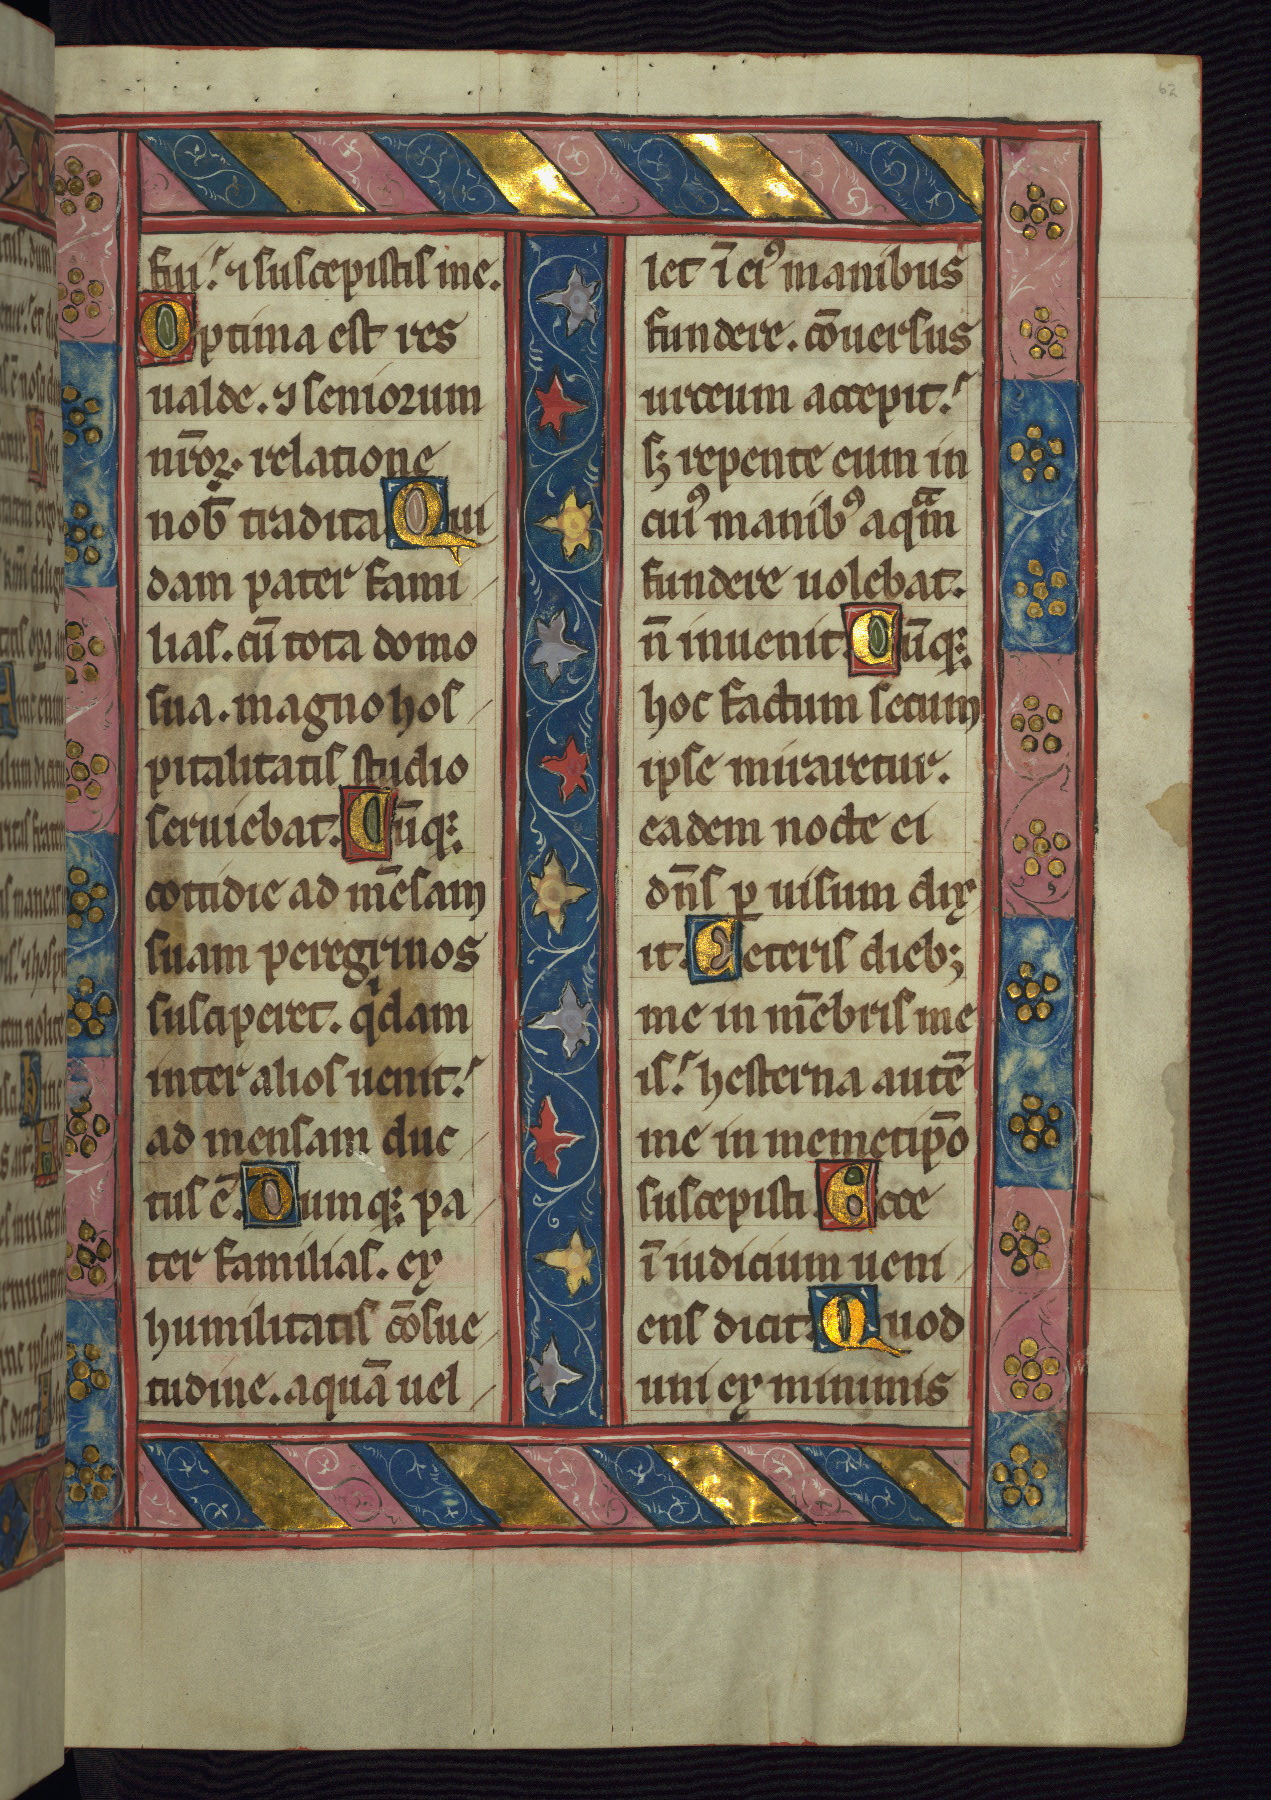 62
fui. ⁊ suscepistis me.
Optima est res
ualde. ⁊ seniorum
nr̄oꝝ. relatione
nob̄ tradita Qui
dam pater fami
lias. cū tota domo
sua. magno hos
pitalitatis studio
seruiebat. Cūq;
cottidie ad mēsam
suam peregrinos
susciperet. qͥdam
inter alios uenit.
ad mensam duc
tus ē. Dumq; pa
ter familias. ex
humilitatis cōsue
tudine. aquā uel
let ī eiꝰ manibus
fundere. cōuersus
urceum accepit.
sꝫ repente eum in
cuiꝰ manibꝰ aqᷓm
fundere uolebat.
n̄ inuenit. Cūq;
hoc factum secum
ipse miraretur.
eadem nocte ei
dn̄s ꝑ uisum dix
it. Ceteris dieb;
me in mēbris me
is. hesterna autē
me in memetip̄o
suscepisti. Ecce
ī iudicium ueni
ens dicit. Quod
uni ex minimis